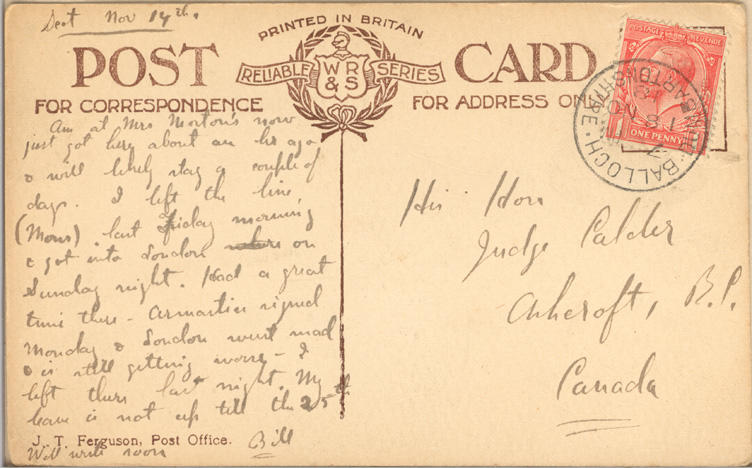 Scot Nov 14th.
PRINTED IN BRITAIN
POST CARD
RELIABLE WR & S SERIES
FOR CORRESPONDENCE
FOR ADDRESS ONLY
POSTAGE REVENUE
ONE PENNY
BALLOCH
Am at Mrs Morton's now
just got here about an hr ago
& will likely stay a couple of
days. I left the line,
(Mons) last Friday morning
& got into London on
Sunday night. Had a great
time there - armastice signed
Monday & London went mad
& is still getting worse - I
left there last night. My
leave is not up till the 25th
J. T. Ferguson, Post Office. Bill
Will write soon
His Hon
Judge Calder
Ashcroft, B.C.
Canada